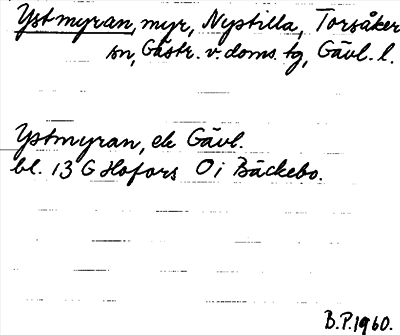 Ystmyran, myr, Nystilla, Torsåker
sn, Gästr. v. doms. tg, Gävl. l.
Ystmyran, ek Gävl.
bl. 13 G Hofors O i Bäckebo.
B.P. 1960.